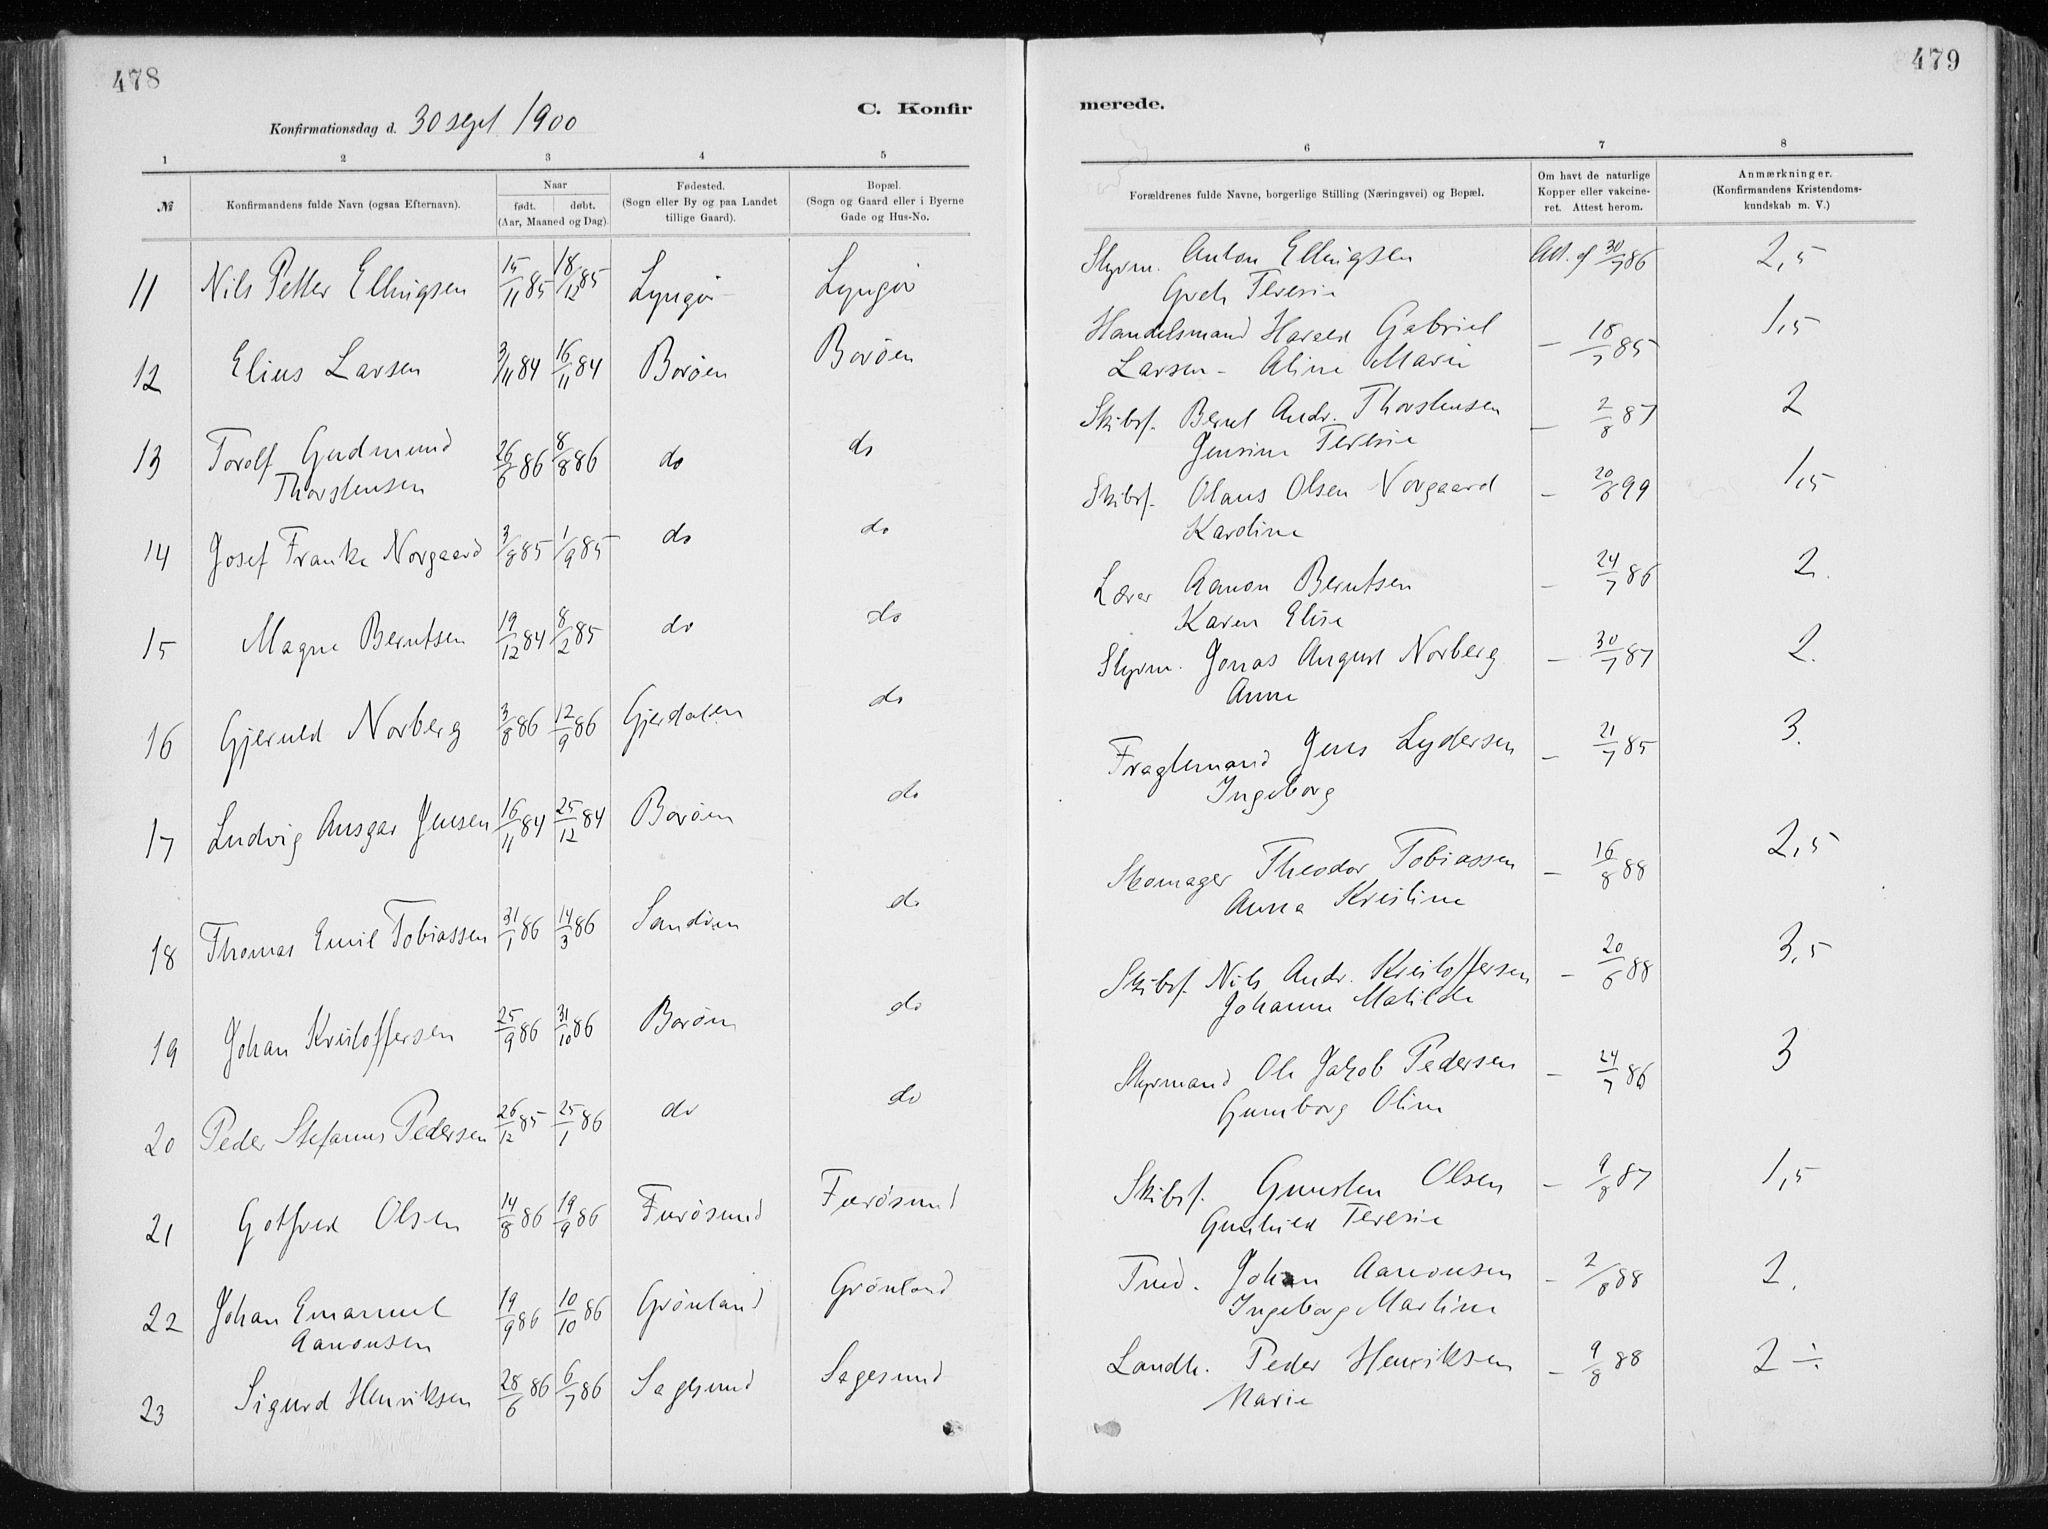 478
C. Konfir
Konfirmationsdag d. 30 sept 1900
1 2 3 4 5
№ Konfirmandens fulde Navn (ogsaa Efternavn). Naar født. døbt. (Aar, Maaned og Dag). Fødested. (Sogn eller By og paa Landet tillige Gaard). Bopæl. (Sogn og Gaard eller i Byerne Gade og Hus-No.
11 Nils Petter Ellingsen 15/11 85 18/12 85 Lyngør Lyngør
12 Elius Larsen 3/11 84 16/11 84 Borøen Borøen
13 Torolf Gudmund 26/6 86 8/8 86 do do
Thorstensen
14 Josef Franke Norgaard 3/8 85 1/9 85 do do
15 Magne Berntsen 19/12 84 8/2 85 do do
16 Gjeruld Norberg 3/8 86 12/9 86 Gjerdalen do
17 Ludvig Ansgar Jensen 16/11 84 25/12 84 Borøen do
18 Thomas Emil Tobiassen 31/1 86 14/3 86 Sandøen do
19 Johan Kristoffersen 25/9 86 31/10 86 Borøen do
20 Peder Stefanus Pedersen 26/12 85 25/1 86 do do
21 Gotfred Olsen 14/8 86 19/9 86 Furøsund Furøsund
22 Johan Emanuel 19/9 86 10/10 86 Grønland Grønland
Aanonsen
23 Sigurd Henriksen 28/6 86 6/7 86 Sagesund Sagesund
479
merede.
6 7 8
Forældrenes fulde Navne, borgerlige Stilling (Næringsvei) og Bopæl. Om havt de naturlige Kopper eller vakcineret. Attest herom. Anmærkninger. (Konfirmandens Kristendomskundskab m. V.)
Styrm. Anton Ellingsen Att. af 30/7 86 2,5
Greth Teresie
Handelsmand Harald Gabriel — 18/7 85 1,5
Larsen - Aline Marie
Skibsf. Bernt Andr. Thorstensen — 2/8 87 2
Jensine Teresie
Skibsf. Olaus Olsen Norgaard — 20/6 99 1,5
Karoline
Lærer Aanon Berntsen — 24/7 86 2.
Karen Elise
Styrm. Jonas August Norberg — 30/7 87 2.
Anne
Fragtemand Jens Lydersen — 21/7 85 3.
Ingeborg
Skomager Theodor Tobiassen — 16/8 88 2,5
Anna Kristine
Skibsf. Nils Andr. Kristoffersen — 20/6 88 3,5
Johanne Matilde
Styrmand Ole Jakob Pedersen — 24/7 86 3
Gunborg Oline
Skibsf. Gunsten Olsen — 9/8 87 1,5
Gunhild Teresie
Tmd. Johan Aanonsen — 2/8 88 2.
Ingeborg Martine
Landh. Peder Henriksen — 9/8 88 2 ÷
Marie